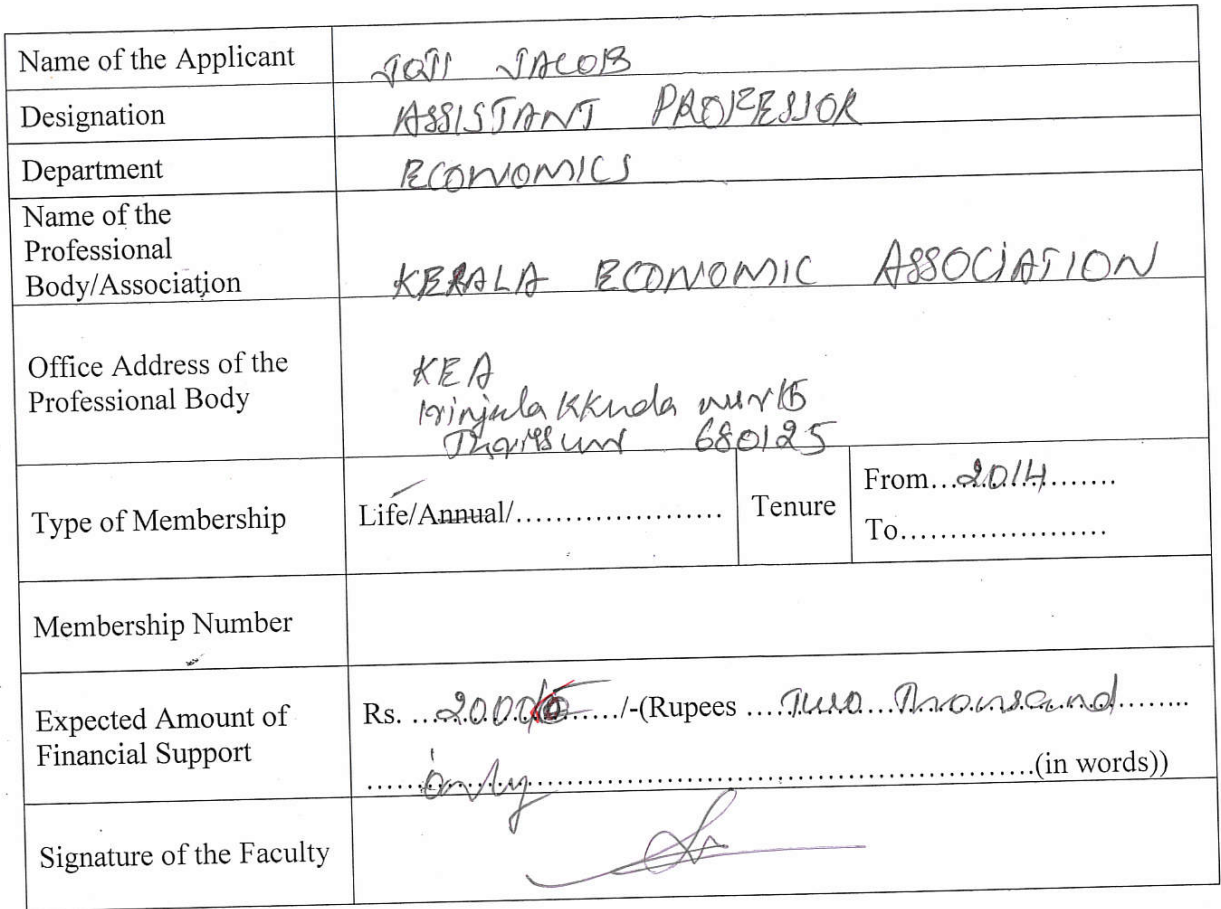 Name of the Applicant JOJI JACOB
Designation ASSISTANT PROFESSOR
Department ECONOMICS
Name of the
Professional
Body/Association KERALA ECONOMIC ASSOCIATION
Office Address of the
Professional Body
KEA
Irinjalakkuda
Thrissur 680125
Type of Membership Life/Annual/..................... Tenure From...2014........
To.....................
Membership Number
Expected Amount of
Financial Support
Rs. ...2000....../-(Rupees ....Two...Thousand........
......only......................................................(in words))
Signature of the Faculty